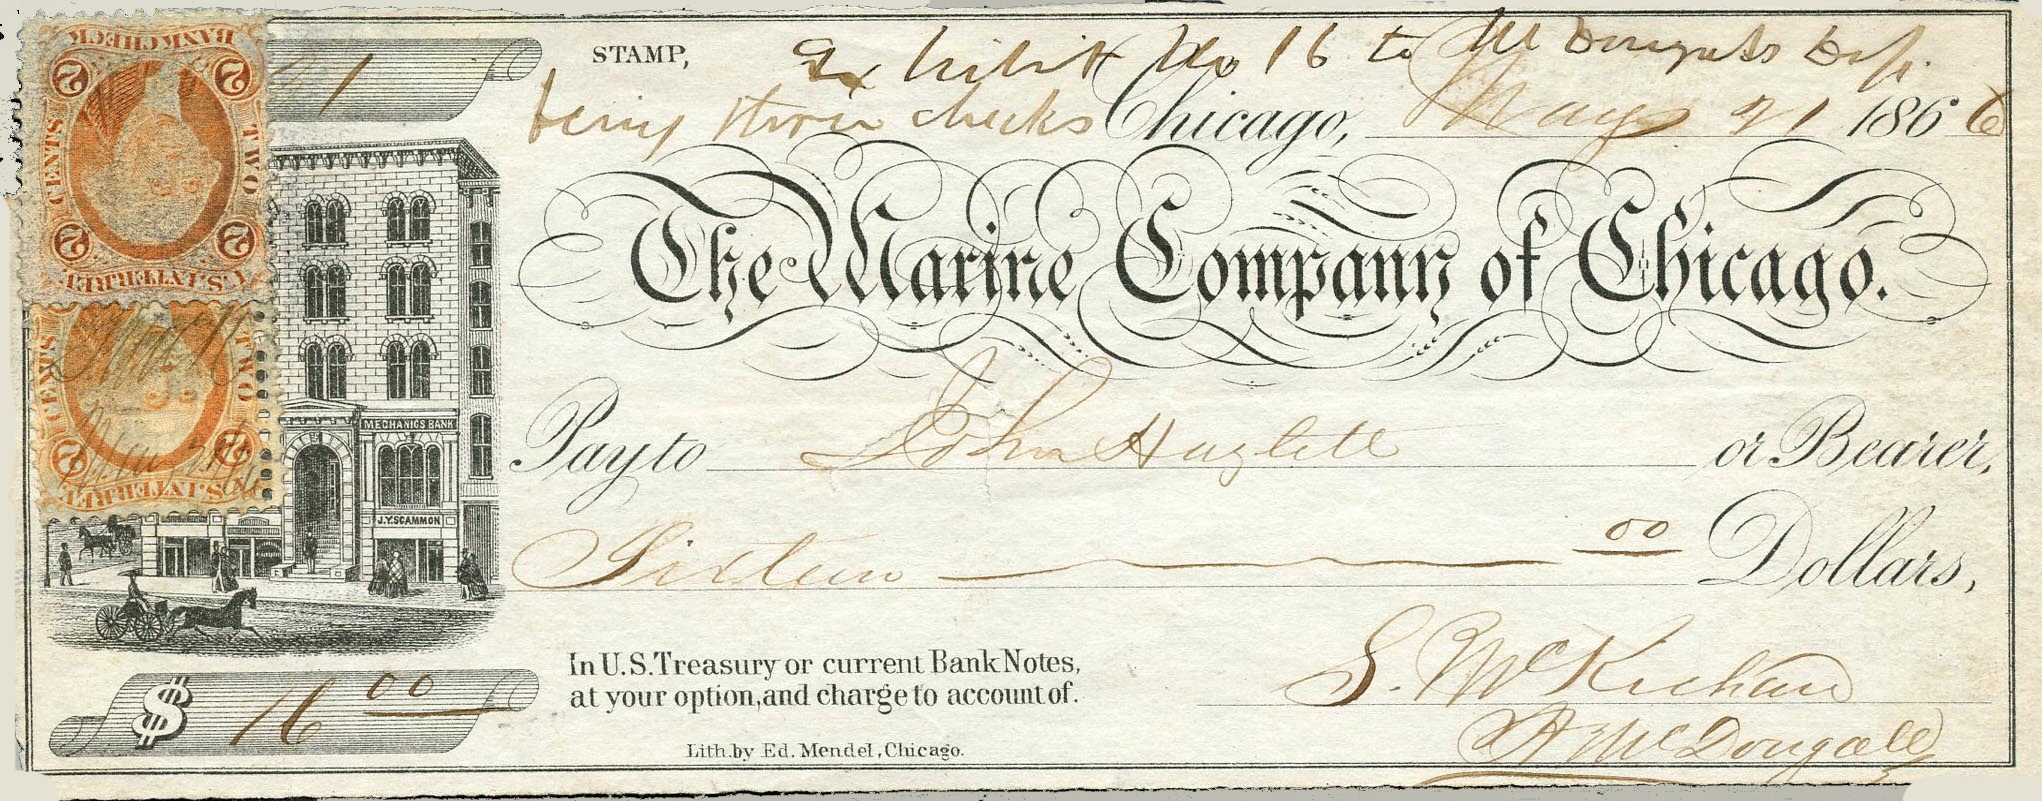 BANK CHECK
2 2
CENTS TWO
2 2
U.S. INTER. REV.
CENTS TWO
2 2
U.S. INTER. REV.
STAMP,
Exhibit No 16 to McDougalls Dep.
being three checks
Chicago, May 21 1866
The Marine Company of Chicago.
MECHANICS BANK
J.Y. SCAMMON
Pay to John Huglett or Bearer,
Sixteen 00 Dollars,
In U.S. Treasury or current Bank Notes,
at your option, and charge to account of.
S. McKichan
A McDougall
$ 16 00
Lith. by Ed. Mendel, Chicago.